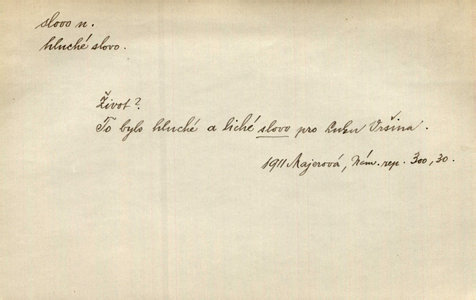 slovo n.
hluché slovo.
Život?
To bylo hluché a liché slovo pro Luku Vršina.
1911 Majerová, Nám. rep. 300, 30.